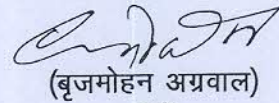 (बृजमोहन अग्रवाल)